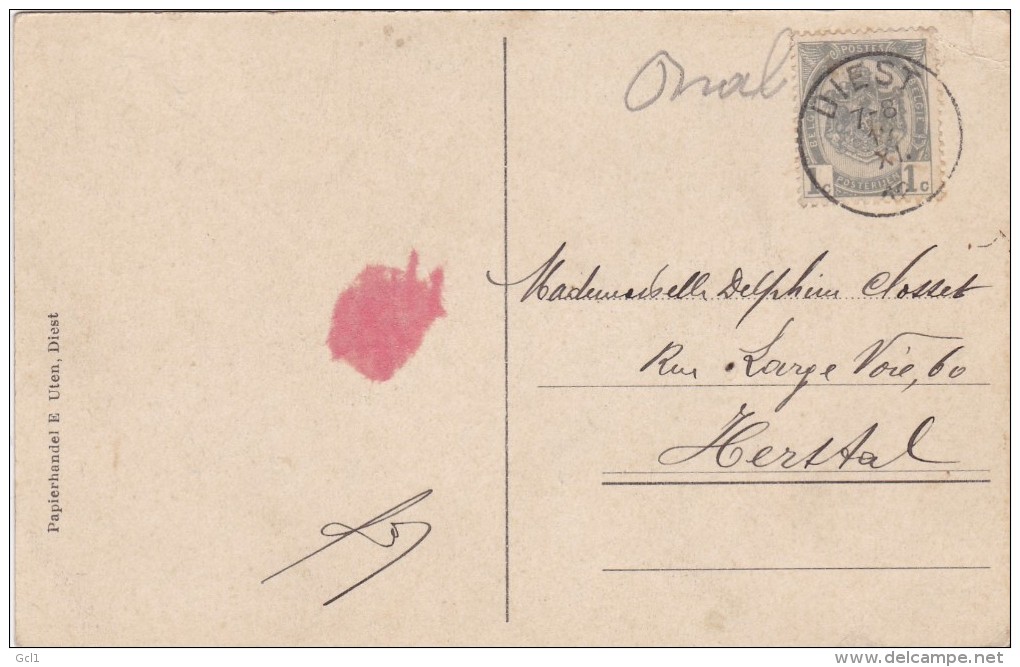 POSTES
BELGIQUE
BELGIË
POSTERIJEN
1c 1c
DIEST
7-8
XI
Mademoiselle Delphine Closset
Rue Large Voie, 60
Herstal
Papierhandel E Uten, Diest
Gcl1
www.delcampe.net